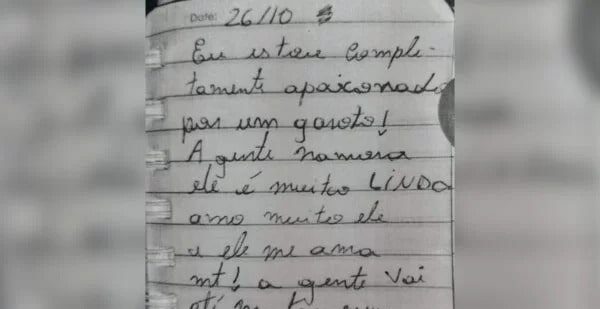 Date: 26/10
Eu estou comple-
tamente apaixonado
por um garoto!
A gente namora
ele é muito LINDO
amo muito ele
e ele me ama
mt! a gente vai
até